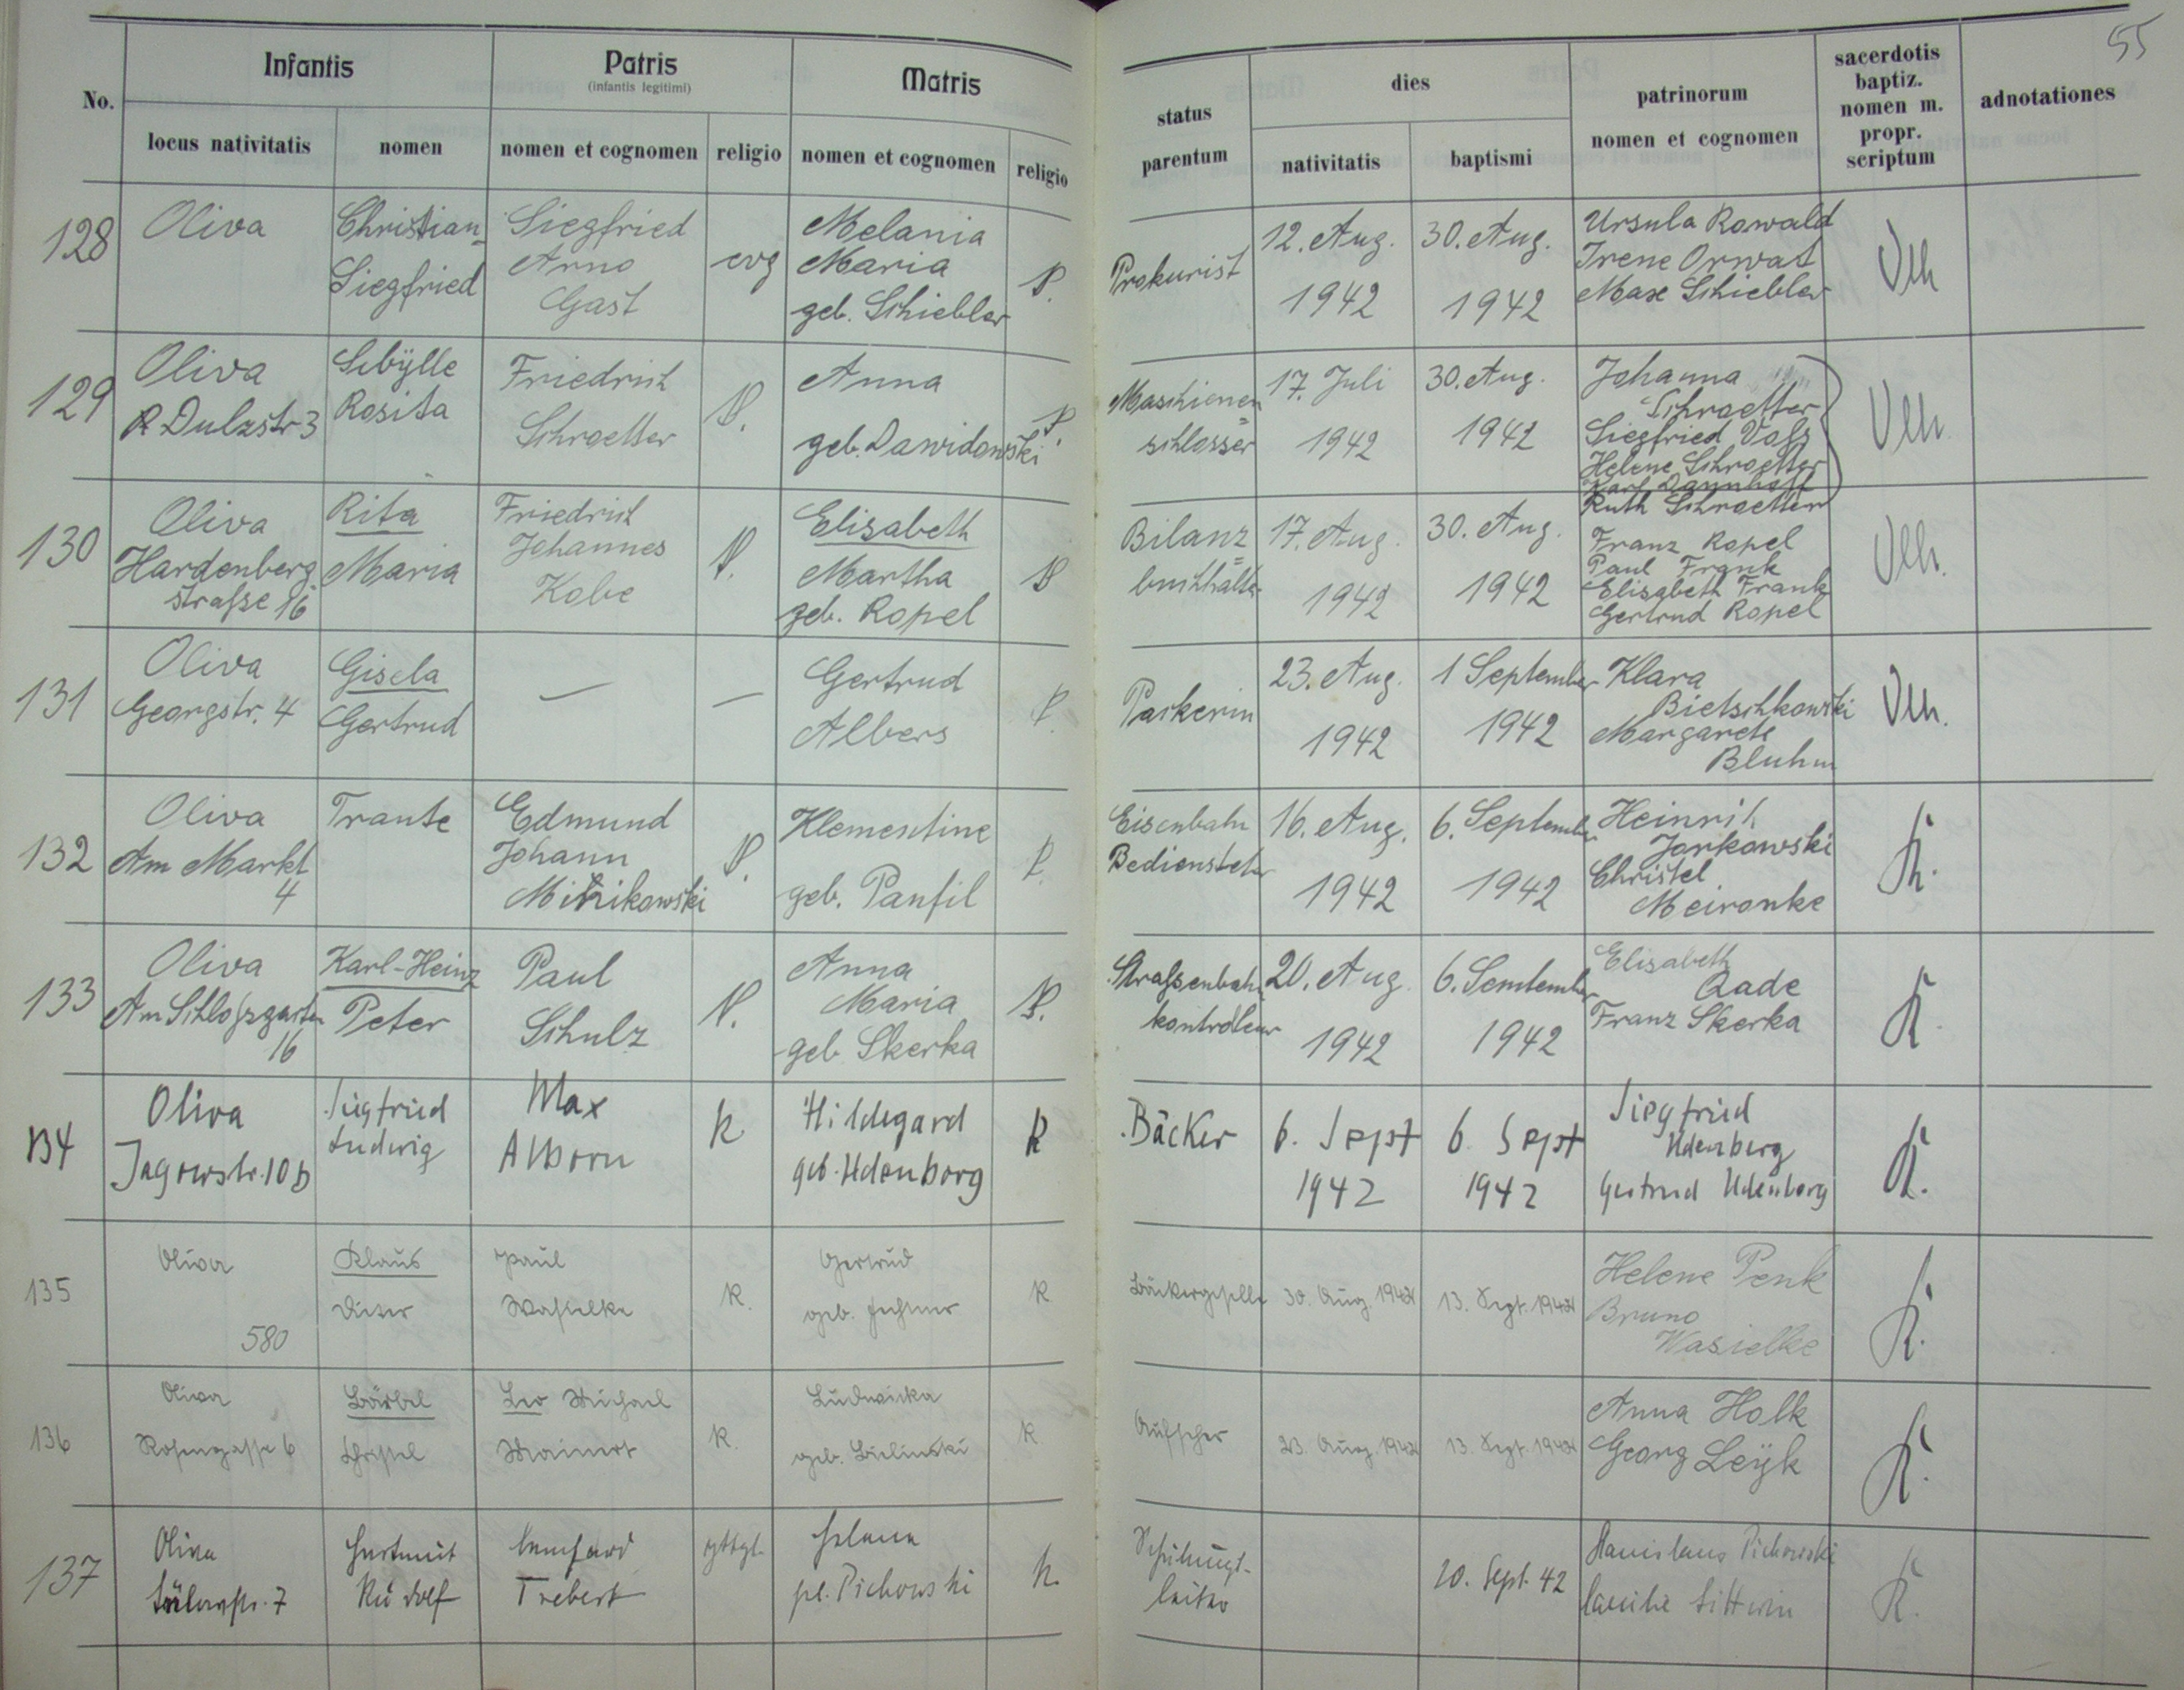 55
No.
Infantis
Patris
(infantis legitimi)
Matris
status
parentum
dies
patrinorum
nomen et cognomen
sacerdotis
baptiz.
nomen m.
propr.
scriptum
adnotationes
locus nativitatis
nomen
nomen et cognomen
religio
nomen et cognomen
religio
nativitatis
baptismi
128
Oliva
Christian-
Siegfried
Siegfried
Arno
Gast
evg
Melania
Maria
geb. Schiebler
Prokurist
12. Aug.
1942
30. Aug.
1942
Ursula Rowald
Irene Orwat
Max Schiebler
129
Oliva
R Dulzstr 3
Sibÿlle
Rosita
Friedrich
Schroetter
Anna
geb. Dawidowski
Maschienen
schlosser
17. Juli
1942
30. Aug.
1942
Johanna
Schroetter
Siegfried Voß
Helene Schroetter
Ruth Schroetter
130
Oliva
Hardenberg
straße 16
Rita
Maria
Friedrich
Johannes
Kobe
Elisabeth
Martha
geb. Ropel
Bilanz=
buchhalter
17. Aug.
1942
30. Aug.
1942
Franz Ropel
Paul Frank
Elisabeth Frank
Gertrud Ropel
131
Oliva
Georgstr. 4
Gisela
Gertrud
—
—
Gertrud
Albers
Packerin
23. Aug.
1942
1 September
1942
Klara
Bietschkowski
Margarete
Bluhm
132
Oliva
Am Markt
4
Traute
Edmund
Johann
Klementine
geb. Panfil
Eisenbahn
Bediensteter
16. Aug.
1942
6. September
1942
Heinrich
Jarkowski
Christel
Meironke
133
Oliva
Am Schloßgarten
16
Karl-Heinz
Peter
Paul
Schulz
Anna
Maria
geb Skerka
Straßenbahn
kontrolleur
20. Aug.
1942
6. Semtember
1942
Elisabeth
Qade
Franz Skerka
K
134
Oliva
Jagowstr. 10b
Siegfried
Ludwig
Max
Alborn
k
Hildegard
geb. Udenborg
k
Bäcker
6. Sept
1942
6. Sept
1942
Siegfried
Udenberg
Gertrud Udenborg
K.
135
Oliva
580
Klaus
Dieter
Paul
Wasielke
k.
Gertrud
geb. Fechner
k
Bäckergeselle
30. Aug. 1942
13. Sept. 1942
Helene Penk
Bruno
Wasielke
K.
136
Oliva
Rosengasse 6
Bärbel
Christel
Leo Michael
Meinert
k.
Ludwicka
geb. Bielinski
k
Aufseher
23. Aug. 1942
13. Sept. 1942
Anna Holk
Georg Leÿk
K.
137
Oliva
Hartmut
Rudolf
Trebert
gttgl.
Helene
Pichowski
k.
Schulungs-
leiter
20. Sept. 42
Stanislaus Pichowski
K.